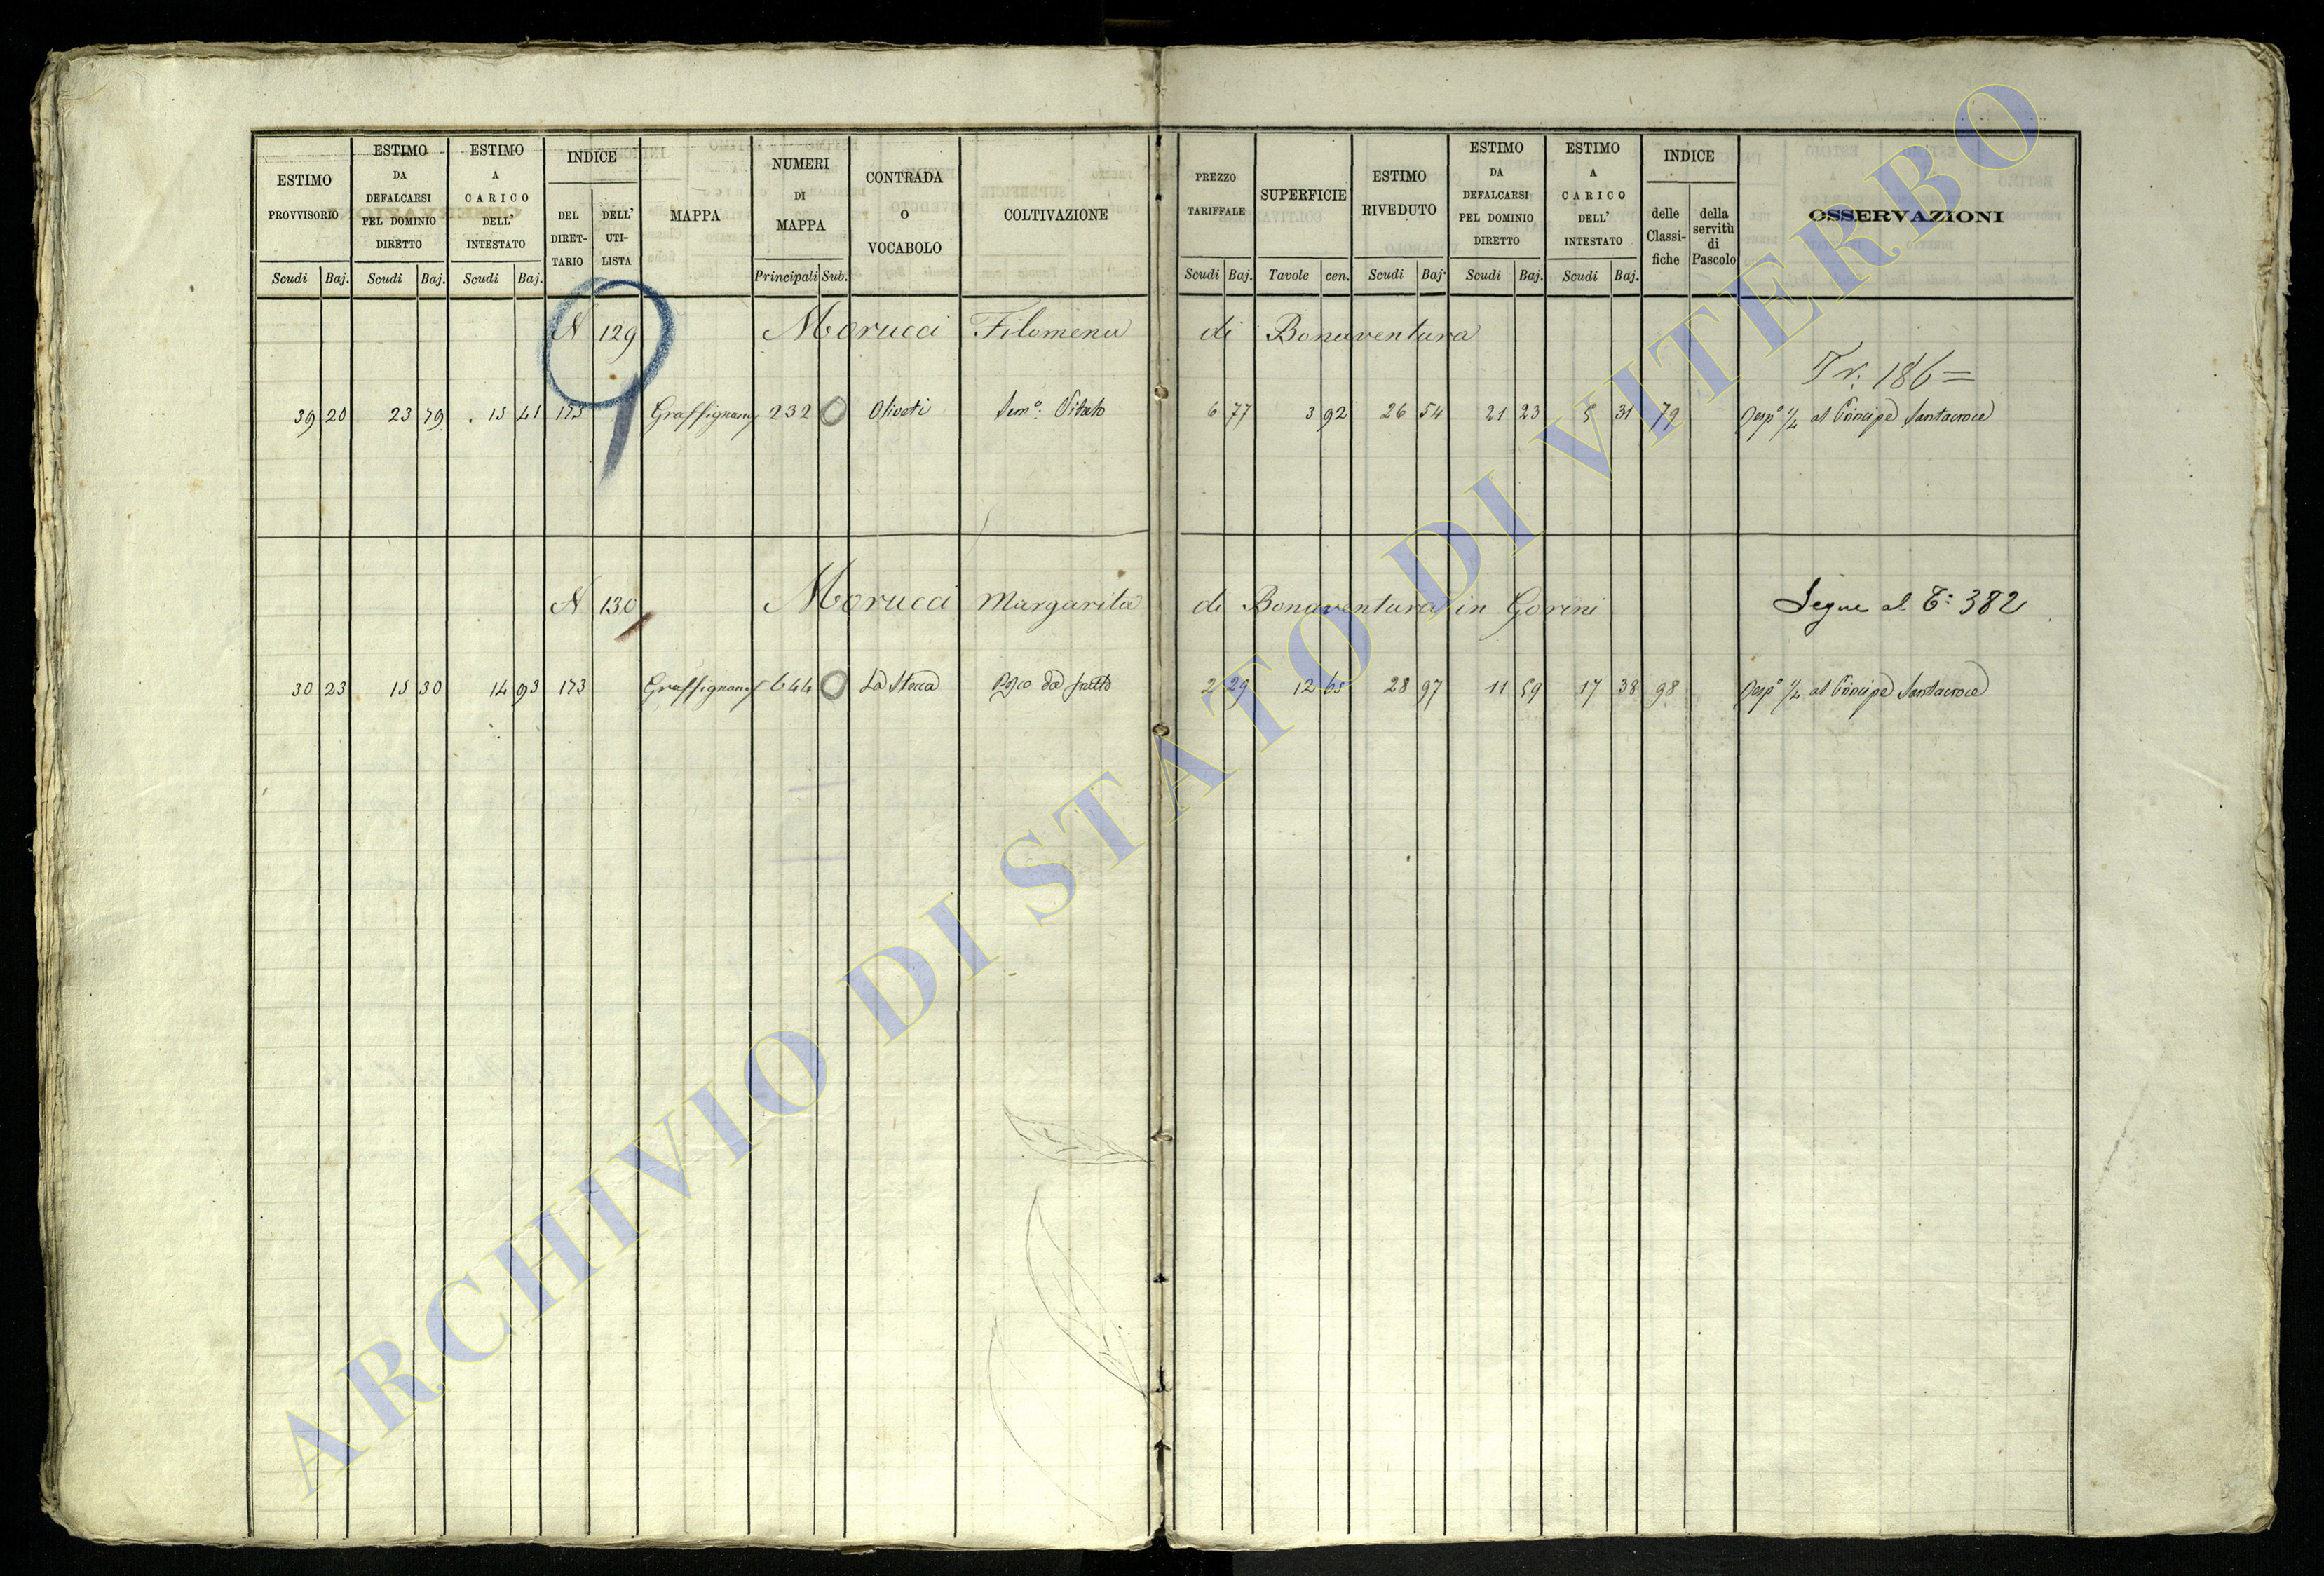 ESTIMO PROVVISORIO | ESTIMO DA DEFALCARSI PEL DOMINIO DIRETTO | ESTIMO A CARICO DELL' INTESTATO | INDICE | MAPPA | NUMERI DI MAPPA | CONTRADA O VOCABOLO | COLTIVAZIONE | PREZZO TARIFFALE | SUPERFICIE | ESTIMO RIVEDUTO | ESTIMO DA DEFALCARSI PEL DOMINIO DIRETTO | ESTIMO A CARICO DELL' INTESTATO | INDICE | OSSERVAZIONI
DEL DIRET-TARIO | DELL' UTI-LISTA | delle Classi-fiche | della servitù di Pascolo
Scudi | Baj. | Scudi | Baj. | Scudi | Baj. | Principali | Sub. | Scudi | Baj. | Tavole | cen. | Scudi | Baj. | Scudi | Baj. | Scudi | Baj.
N 129 Morucci Filomena di Bonaventura
Tr. 186 =
39 20 | 23 79 | 15 41 | 173 | 232 | Oliveti | Sem.º Vitato | 6 77 | 3 92 | 26 54 | 21 23 | 5 31 | 79 | Risp.ª 1/4 al Principe Santacroce
N 130 Morucci Margarita di Bonaventura in Gorini
Segue al T: 382
30 23 | 15 30 | 14 93 | 173 | 644 | La Stecca | da frutto | 2 29 | 12 65 | 28 97 | 11 59 | 17 38 | 98 | Risp.ª 1/4 al Principe Santacroce
ARCHIVIO DI STATO DI VITERBO